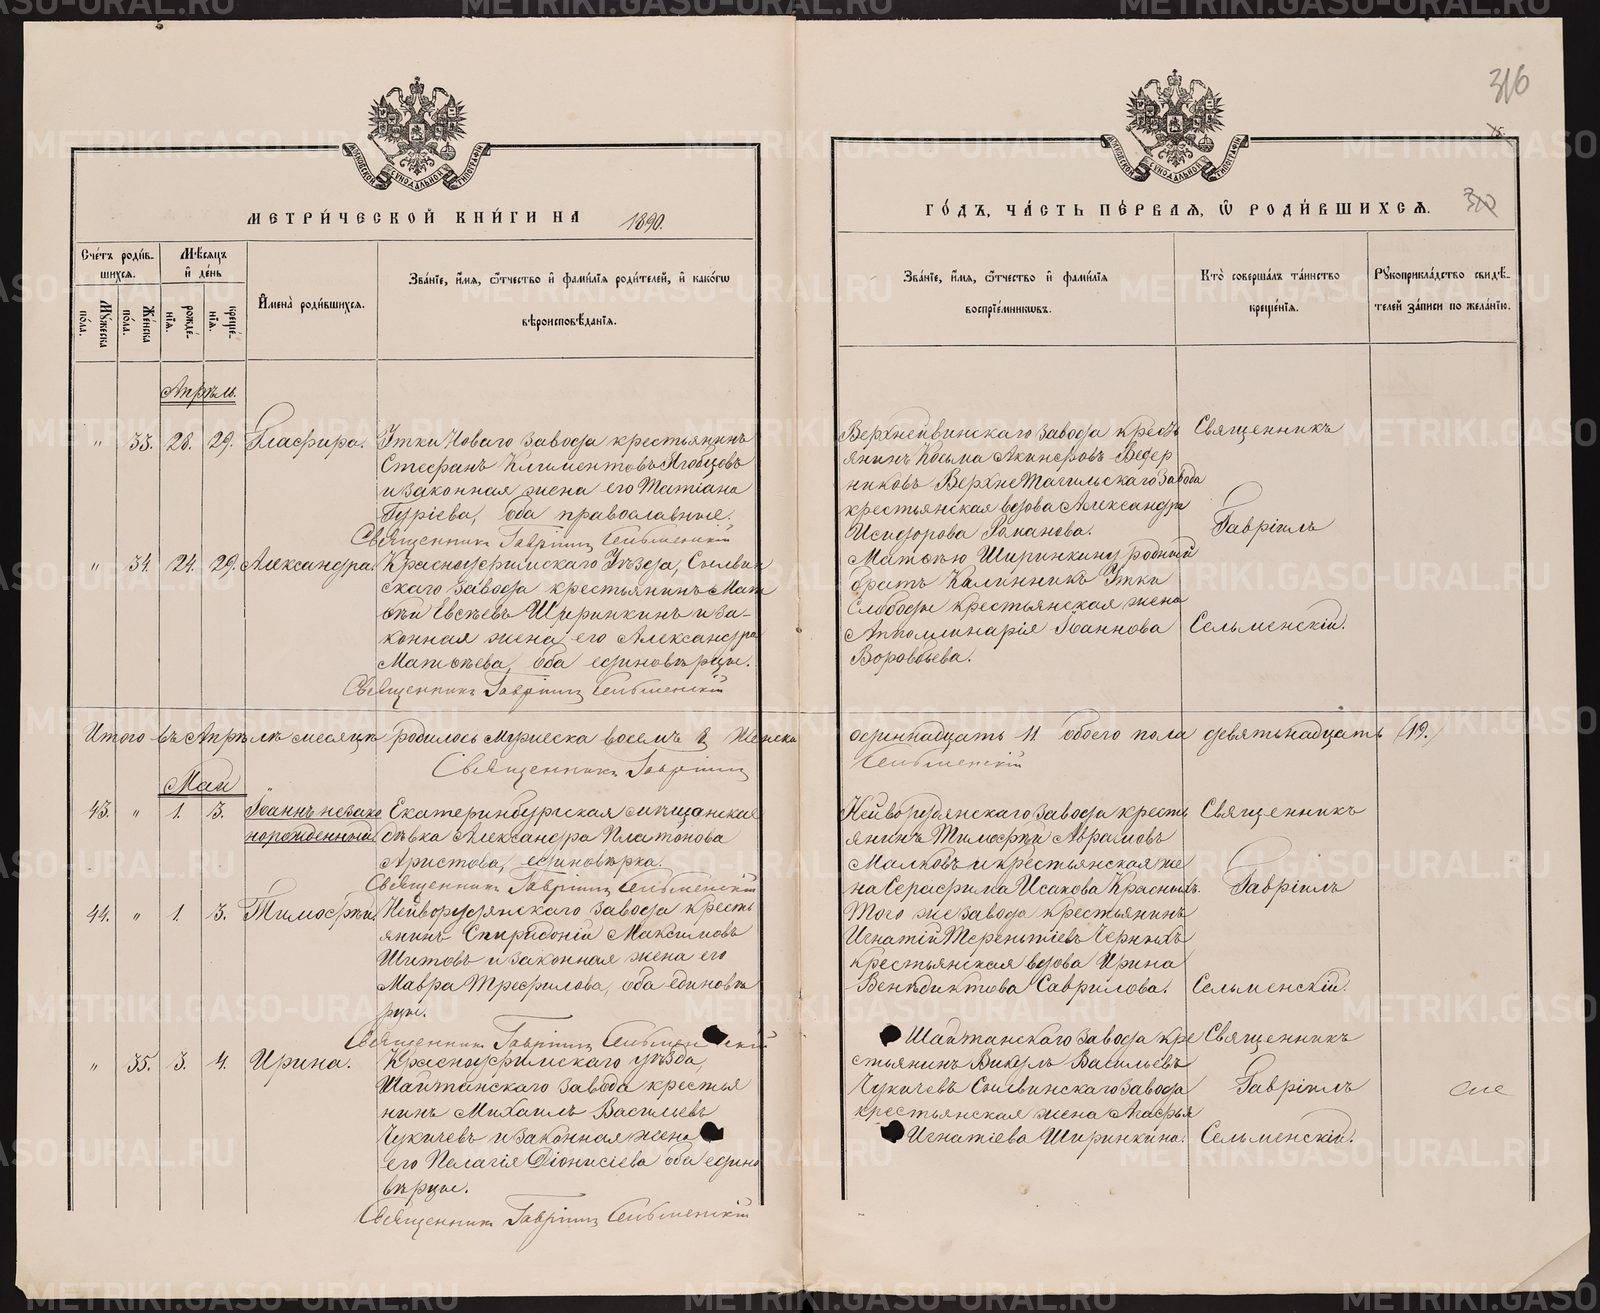 316
МЕТРИ́ЧЕСКОЙ КНИ́ГИ НА 1890.
ГО́ДЪ, ЧА́СТЬ ПЕ́РВАЯ, Ѿ РОДИ́ВШИХСЯ.
Сче́тъ роди́в-
шихся.
Мѣ́сяцъ
и де́нь
Мꙋ́жеска по́ла.
Же́нска по́ла.
рожде́-
нія.
креще́-
нія.
Имена̀ роди́вшихся.
Зва́ніе, и́мя, ѻ́тчество и фами́лія роди́телей, и како́гѡ
вѣроисповѣ́данія.
Зва́ніе, и́мя, ѻ́тчество и фами́лія
воспріе́мниковъ.
Кто̀ соверша́лъ та́инство
креще́нія.
Рꙋкоприкла́дство свидѣ́-
телей за́писи по жела́нію.
Апрѣль.
" 33. 28. 29. Глафира.
Утки Новаго завода крестьянинъ
Стефанъ Климентовъ Ягобцовъ
и законная жена его Татіана
Гуріева, оба православные.
Священникъ Гавріилъ Сельменскій
Верхнейвинскаго завода кресть
янинъ Косьма Акинфовъ Ведер
никовъ Верхне Тагильскаго завода
крестьянская вдова Александра
Исидорова Романова.
Священникъ
Гавріилъ
Сельменскій.
" 34. 24. 29. Александра.
Красноуфимскаго Уѣзда, Сылвин
скаго завода крестьянинъ Мат
ѳѣй Евсѣевъ Ширинкинъ и за-
конная жена его Александра
Матѳѣева, оба единовѣрцы.
Священникъ Гавріилъ Сельменскій
Матѳѣю Ширинкину родный
братъ Калинникъ Утки
Слободы крестьянская жена
Апполинарія Іоаннова
Воробьева.
Итого въ Апрѣлѣ мѣсяцѣ родилось мужеска восемь 8 Женска одиннадцать 11 обоего пола девятьнадцать (19.)
Священникъ Гавріилъ Сельменскій
Май
43. " 1. 3. Іоаннъ незако
норожденный.
Екатеринбургская мѣщанская
дѣвка Александра Платонова
Аристова, единовѣрка.
Священникъ Гавріилъ Сельменскій
Нейворудянскаго завода кресть
янинъ Тимофѣй Аврамовъ
Малковъ и крестьянская же
на Серафима Исакова Красныхъ.
Священникъ
Гавріилъ
Сельменскій.
44. " 1. 3. Тимофѣй.
Нейворудянскаго завода кресть
янинъ Спиридоній Максимовъ
Шитовъ и законная жена его
Мавра Трефилова, оба единовѣ
рцы.
Священникъ Гавріилъ Сельменскій
Того же завода крестьянинъ
Игнатій Терентіевъ Черныхъ
крестьянская вдова Ирина
Венедиктова Саврилова.
" 35. 3. 4. Ирина.
Красноуфимскаго уѣзда,
Шайтанскаго завода крестья
нинъ Михаилъ Васильевъ
Чукичевъ и законная жена
его Пелагія Діонисіева оба едино
вѣрцы.
Священникъ Гавріилъ Сельменскій
Шайтанскаго завода кре
стьянинъ Викулъ Васильевъ
Чукичевъ Сылвинскаго завода
крестьянская жена Агафья
Игнатіева Ширинкина.
Священникъ
Гавріилъ
Сельменскій.
METRIKI.GASO-URAL.RU